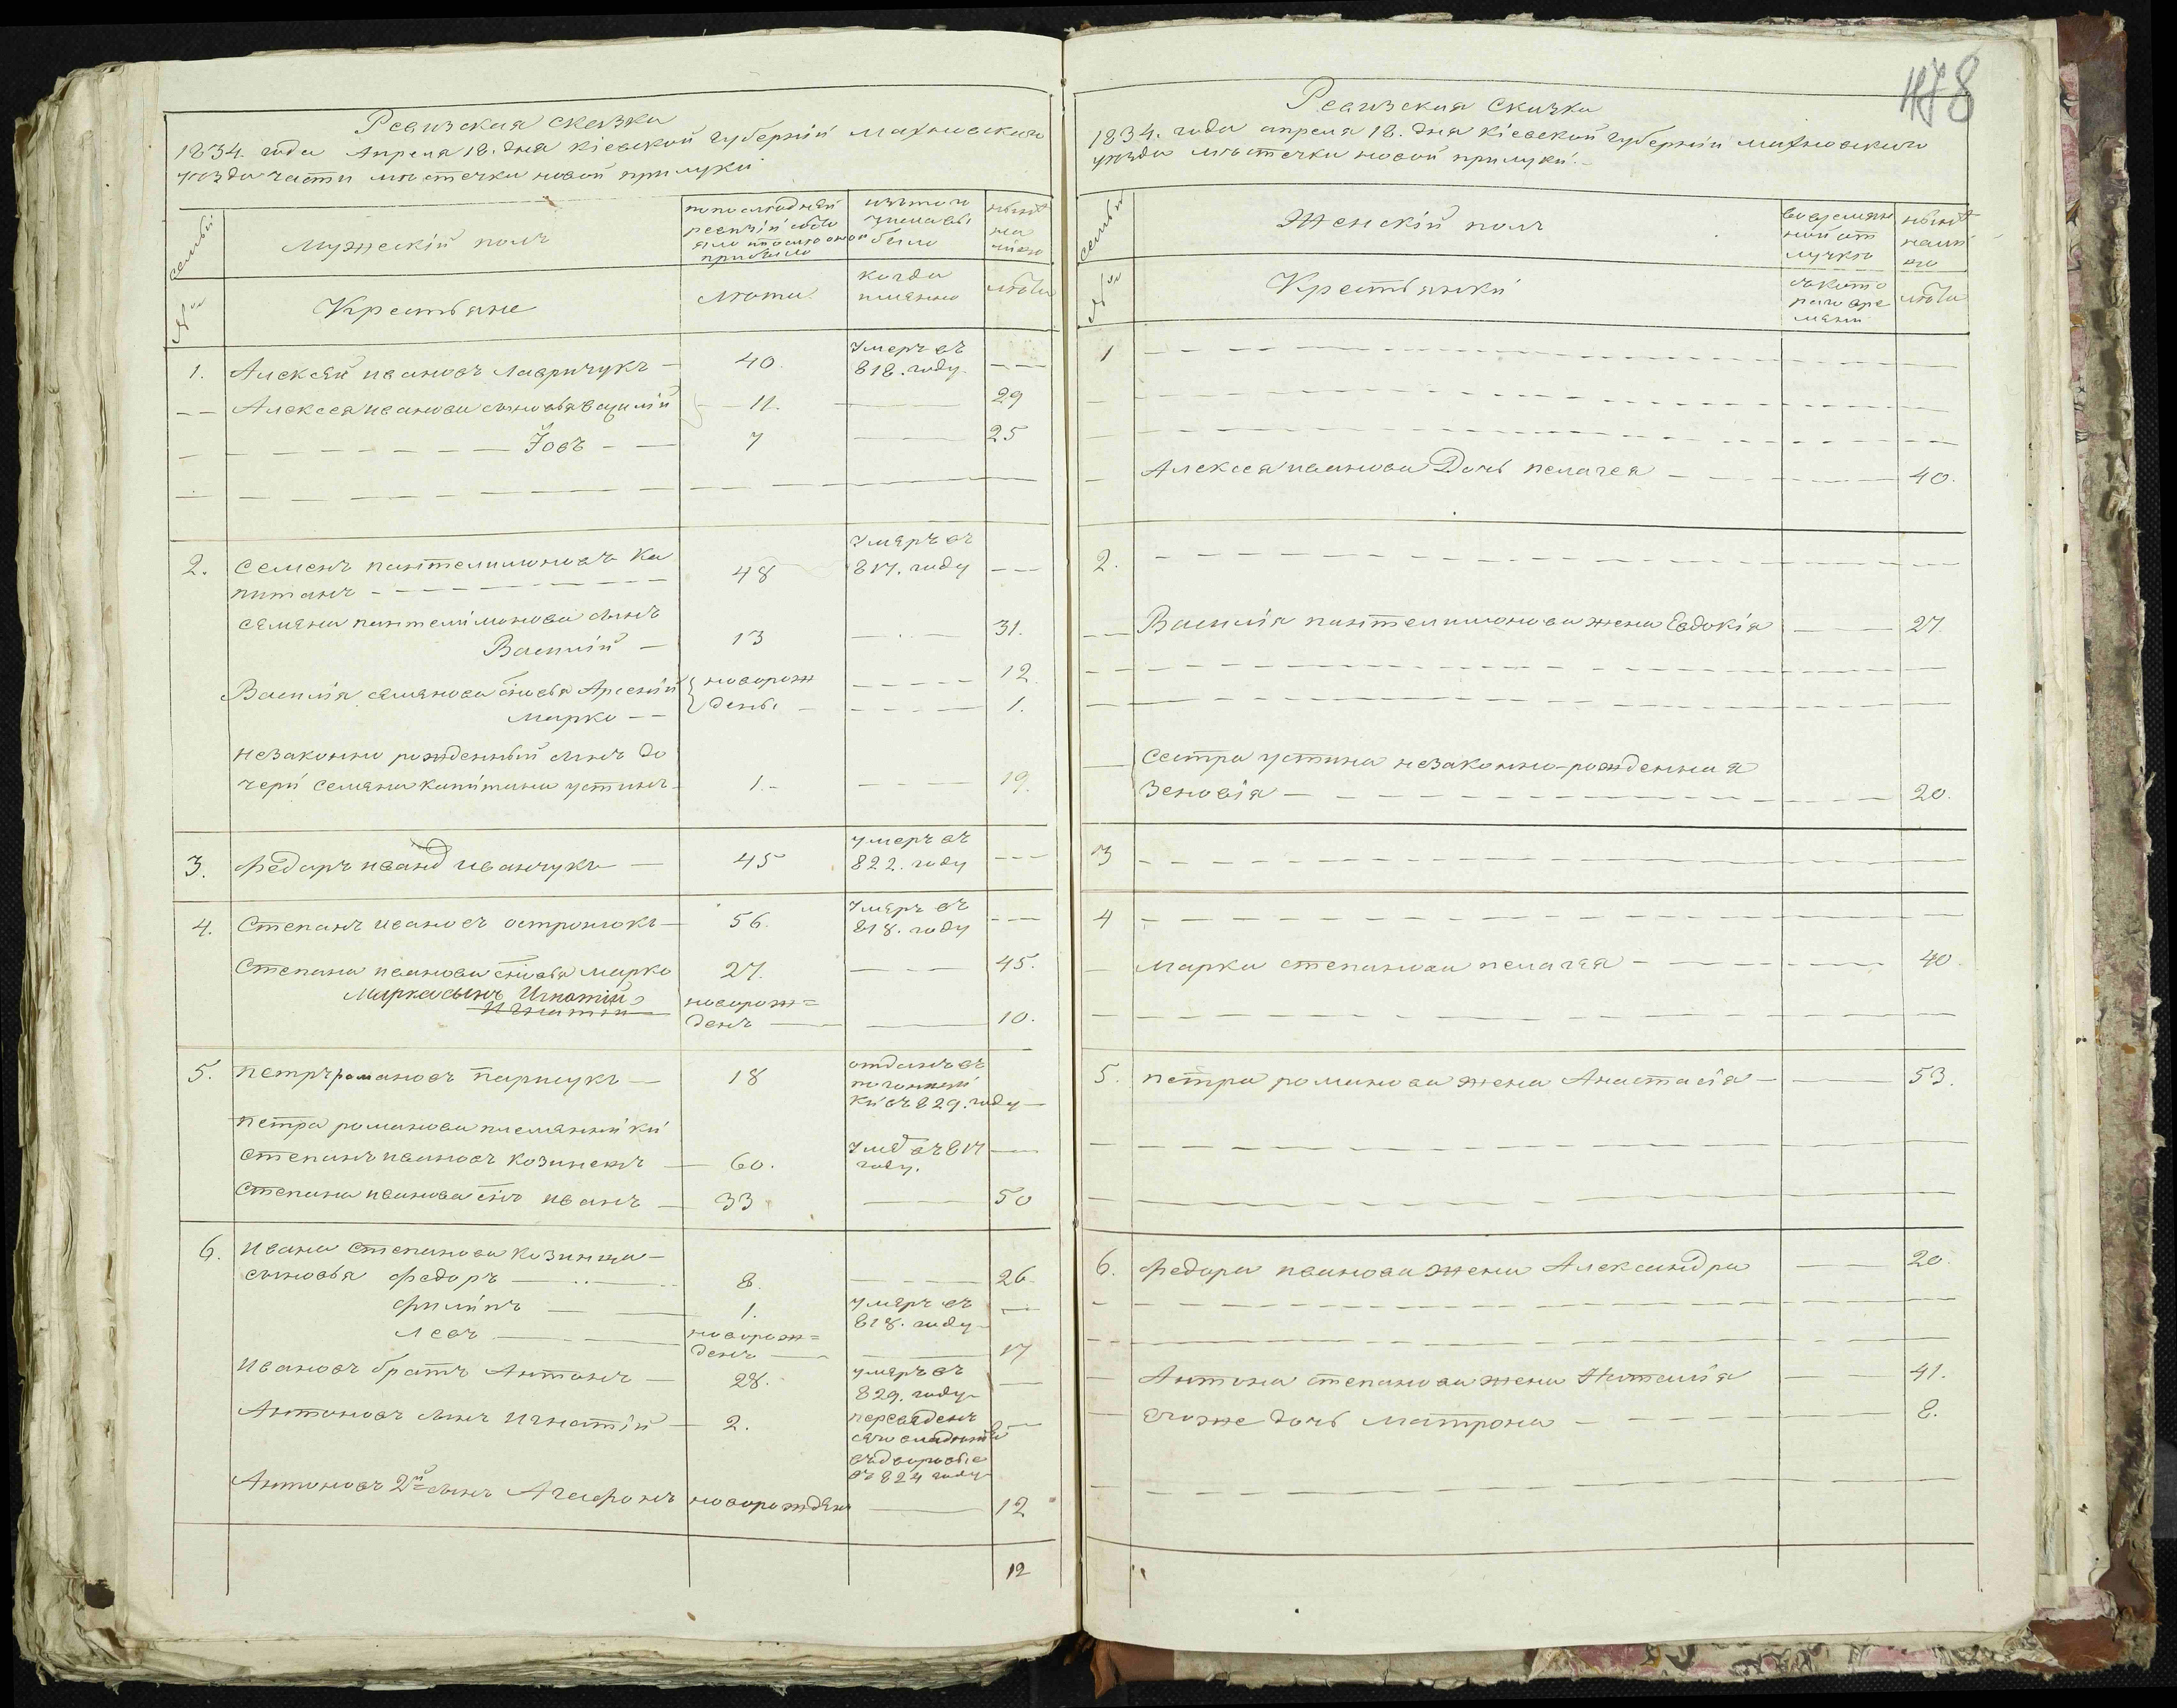 Ревизская сказка
1834. года Апреля 18. дня Кіевской губерніи Махновского
уѣзда части мѣстечка новой прилуки
семьи
Мужескій полъ
по последней
ревизіи состо
яло и после оной
прибыло
изъ того
числа вы
было
нынѣ
на
лицо
№
Крестьяне
Лѣта
когда
имянно
лѣта
1. Алексей ивановъ Лавричукъ — 40. Умеръ въ
818. году — —
— — Алексея иванова сыновья василій 11. — 29
— — Іовъ — — 7 — 25
2. Семенъ пантелимоновъ Ка 48 Умеръ въ
817. году — —
питанъ — —
семена пантелимонова сынъ
Василій — 13 — 31.
Василія семенова сновья Арсеній новорож — 12.
Марко — — дены — 1.
незаконно рожденный сынъ до
чери семена капитана устинъ — 1. — 19.
3. Федоръ иванов иванчукъ — 45 умеръ въ
822. году — —
4. Степанъ ивановъ остронюкъ — 56. Умеръ въ
818. году — —
Степана иванова сновья марко 27. — 45.
Марка сынъ Игнатій новорож=
Игнатій денъ — 10.
5. петръ романовъ парчукъ — 18 отданъ въ
погонщи
ки въ 829. году —
петра романова племянники
степанъ ивановъ козинецъ — 60. Умеръ въ 817
году. —
Степана иванова снъ иванъ — 33 — 50
6. ивана степанова козинца —
сыновья федоръ — 8. — 26.
филипъ — 1. умеръ въ
818. году —
левъ — новорож=
денъ — 17
ивановъ братъ Антонъ — 28. умеръ въ
829. году —
Антоновъ сынъ игнатій — 2. переведенъ
въ дворовые
въ 824 году
Антоновъ 2й сынъ Агафонъ новорожденъ — 12
12
478
Ревизская Сказка
1834. года апреля 18. дня Кіевской губерніи махновского
уѣзда мѣстечка новой прилуки. —
семьи
Женскій полъ
во времян
ной от
лучкѣ
нынѣ
на ли
цо
№
Крестьянки
съ кото
раго вре
мени
лѣта
1 — —
— Алексея иванова Дочь пелагея — 40.
2. — —
— — Василія пантелимонова жена Евдокія — 27.
— Сестра устина незаконно-рожденная
Зеновія — 20.
3 — —
4 — —
— марка степанова пелагея — 40.
5. петра романова жена Анастасія — 53.
6. федора иванова жена Александра — 20.
— Антона степанова жена Наталія — 41.
— Егоже дочь матрона — 8.